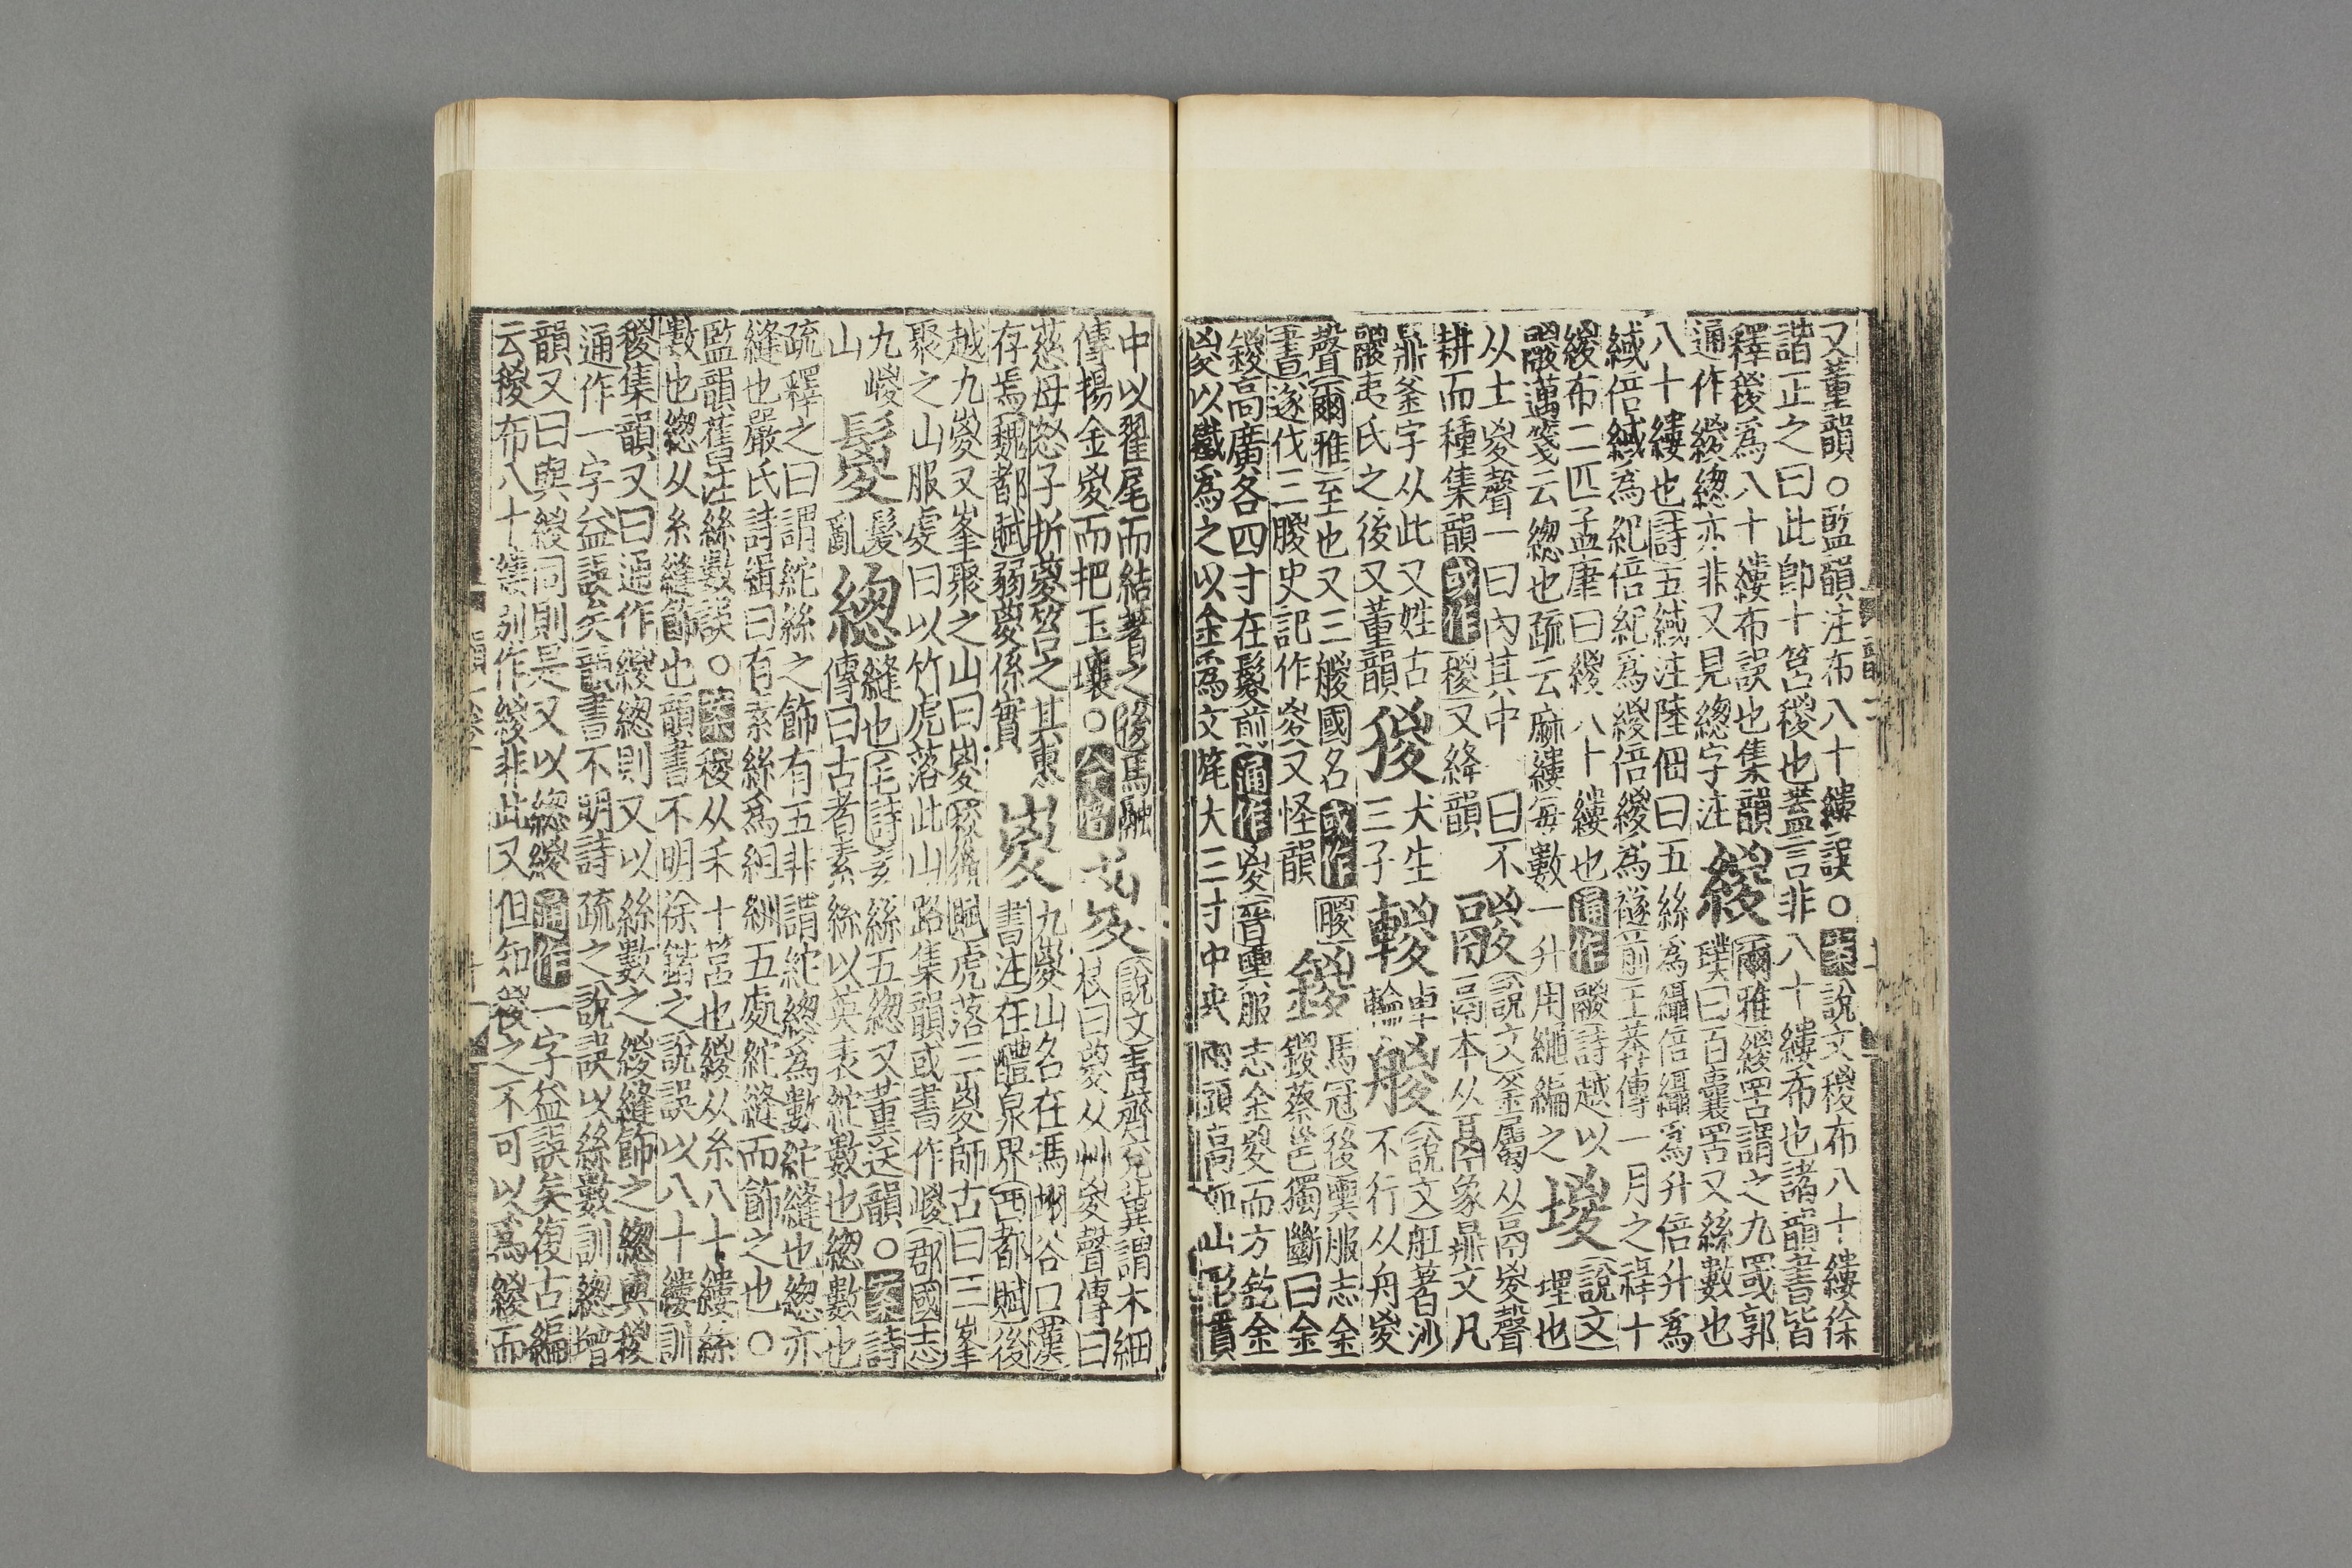 又董韻○監韻注布八十縷誤○案說文稯布八十縷徐
諧正之曰此卽十筥稯也葢言非八十縷布也諸韻書皆
釋稯爲八十縷布誤也集韻
通作緵總亦非又見總字注
緵
爾雅緵罟謂之九罭郭
璞曰百囊罟又絲數也
八十縷也詩五緎注陸佃曰五絲爲纑倍纑爲升倍升爲
緎倍緎爲紀倍紀爲緵倍緵爲襚前王莽傳一月之祿十
緵布二匹孟康曰緵八十縷也通作鬷詩越以
鬷邁箋云緫也疏云麻縷每數一升用繩編之
堫
說文
埋也
从土㚇聲一曰內其中曰不
耕而種集韻或作稯又絳韻
鬷
說文釜屬从鬲㚇聲
鬲本从⿱鬲象鼎文凡
鼎釜字从此又姓古
鬷夷氏之後又董韻
猣
犬生
三子
䡯
車
輪
艐
說文船著沙
不行从舟㚇
聲爾雅至也又三艐國名或作䐋
書遂伐三朡史記作㚇又怪韻
鍐
馬冠後輿服志金
鍐蔡邕獨斷曰金
鍐高廣各四寸在髦前通作㚇晉輿服志金㚇而方釳金
㚇以鐵爲之以金爲文旄大三寸中央兩頭高如山形貫
中以翟尾而結著之後馬融
傳揚金㚇而把玉瓖○
葼
說文青齊兗冀謂木細
枝曰葼从艸㚇聲傳曰
慈母怒子折葼笞之其惠
存焉魏都賦弱葼係實
嵕
九嵕山名在馮翊谷口漢
書注在醴泉界西都賦後
越九嵕又峯聚之山曰嵕羽獵賦虎落三嵕師古曰三峯
聚之山服虔曰以竹虎落此山路集韻或書作嵏郡國志
九嵕
山
鬉
髮
亂
緫
縫也毛詩素絲五緫又董送韻○案詩
傳曰古者素絲以英裘紽數也緫數也
疏釋之曰謂紽絲之飾有五非謂紽緫爲數紽縫也緫亦
縫也嚴氏詩緝曰有素絲爲組紃五處紽縫而飾之也○
監韻舊注絲數誤○案稯从禾十筥也緵从糸八十縷絲
數也緫从糸縫飾也韻書不明徐鍇之說誤以八十縷訓
稯集韻又曰通作緵總則又以絲數之緵縫飾之緫與稯
通作一字益誤矣韻書不明詩疏之說誤以絲數訓緫增
韻又曰與緵同則是又以緫緵通作一字益誤矣復古編
云稯布八十縷別作緵非此又但知稯之不可以爲緵而